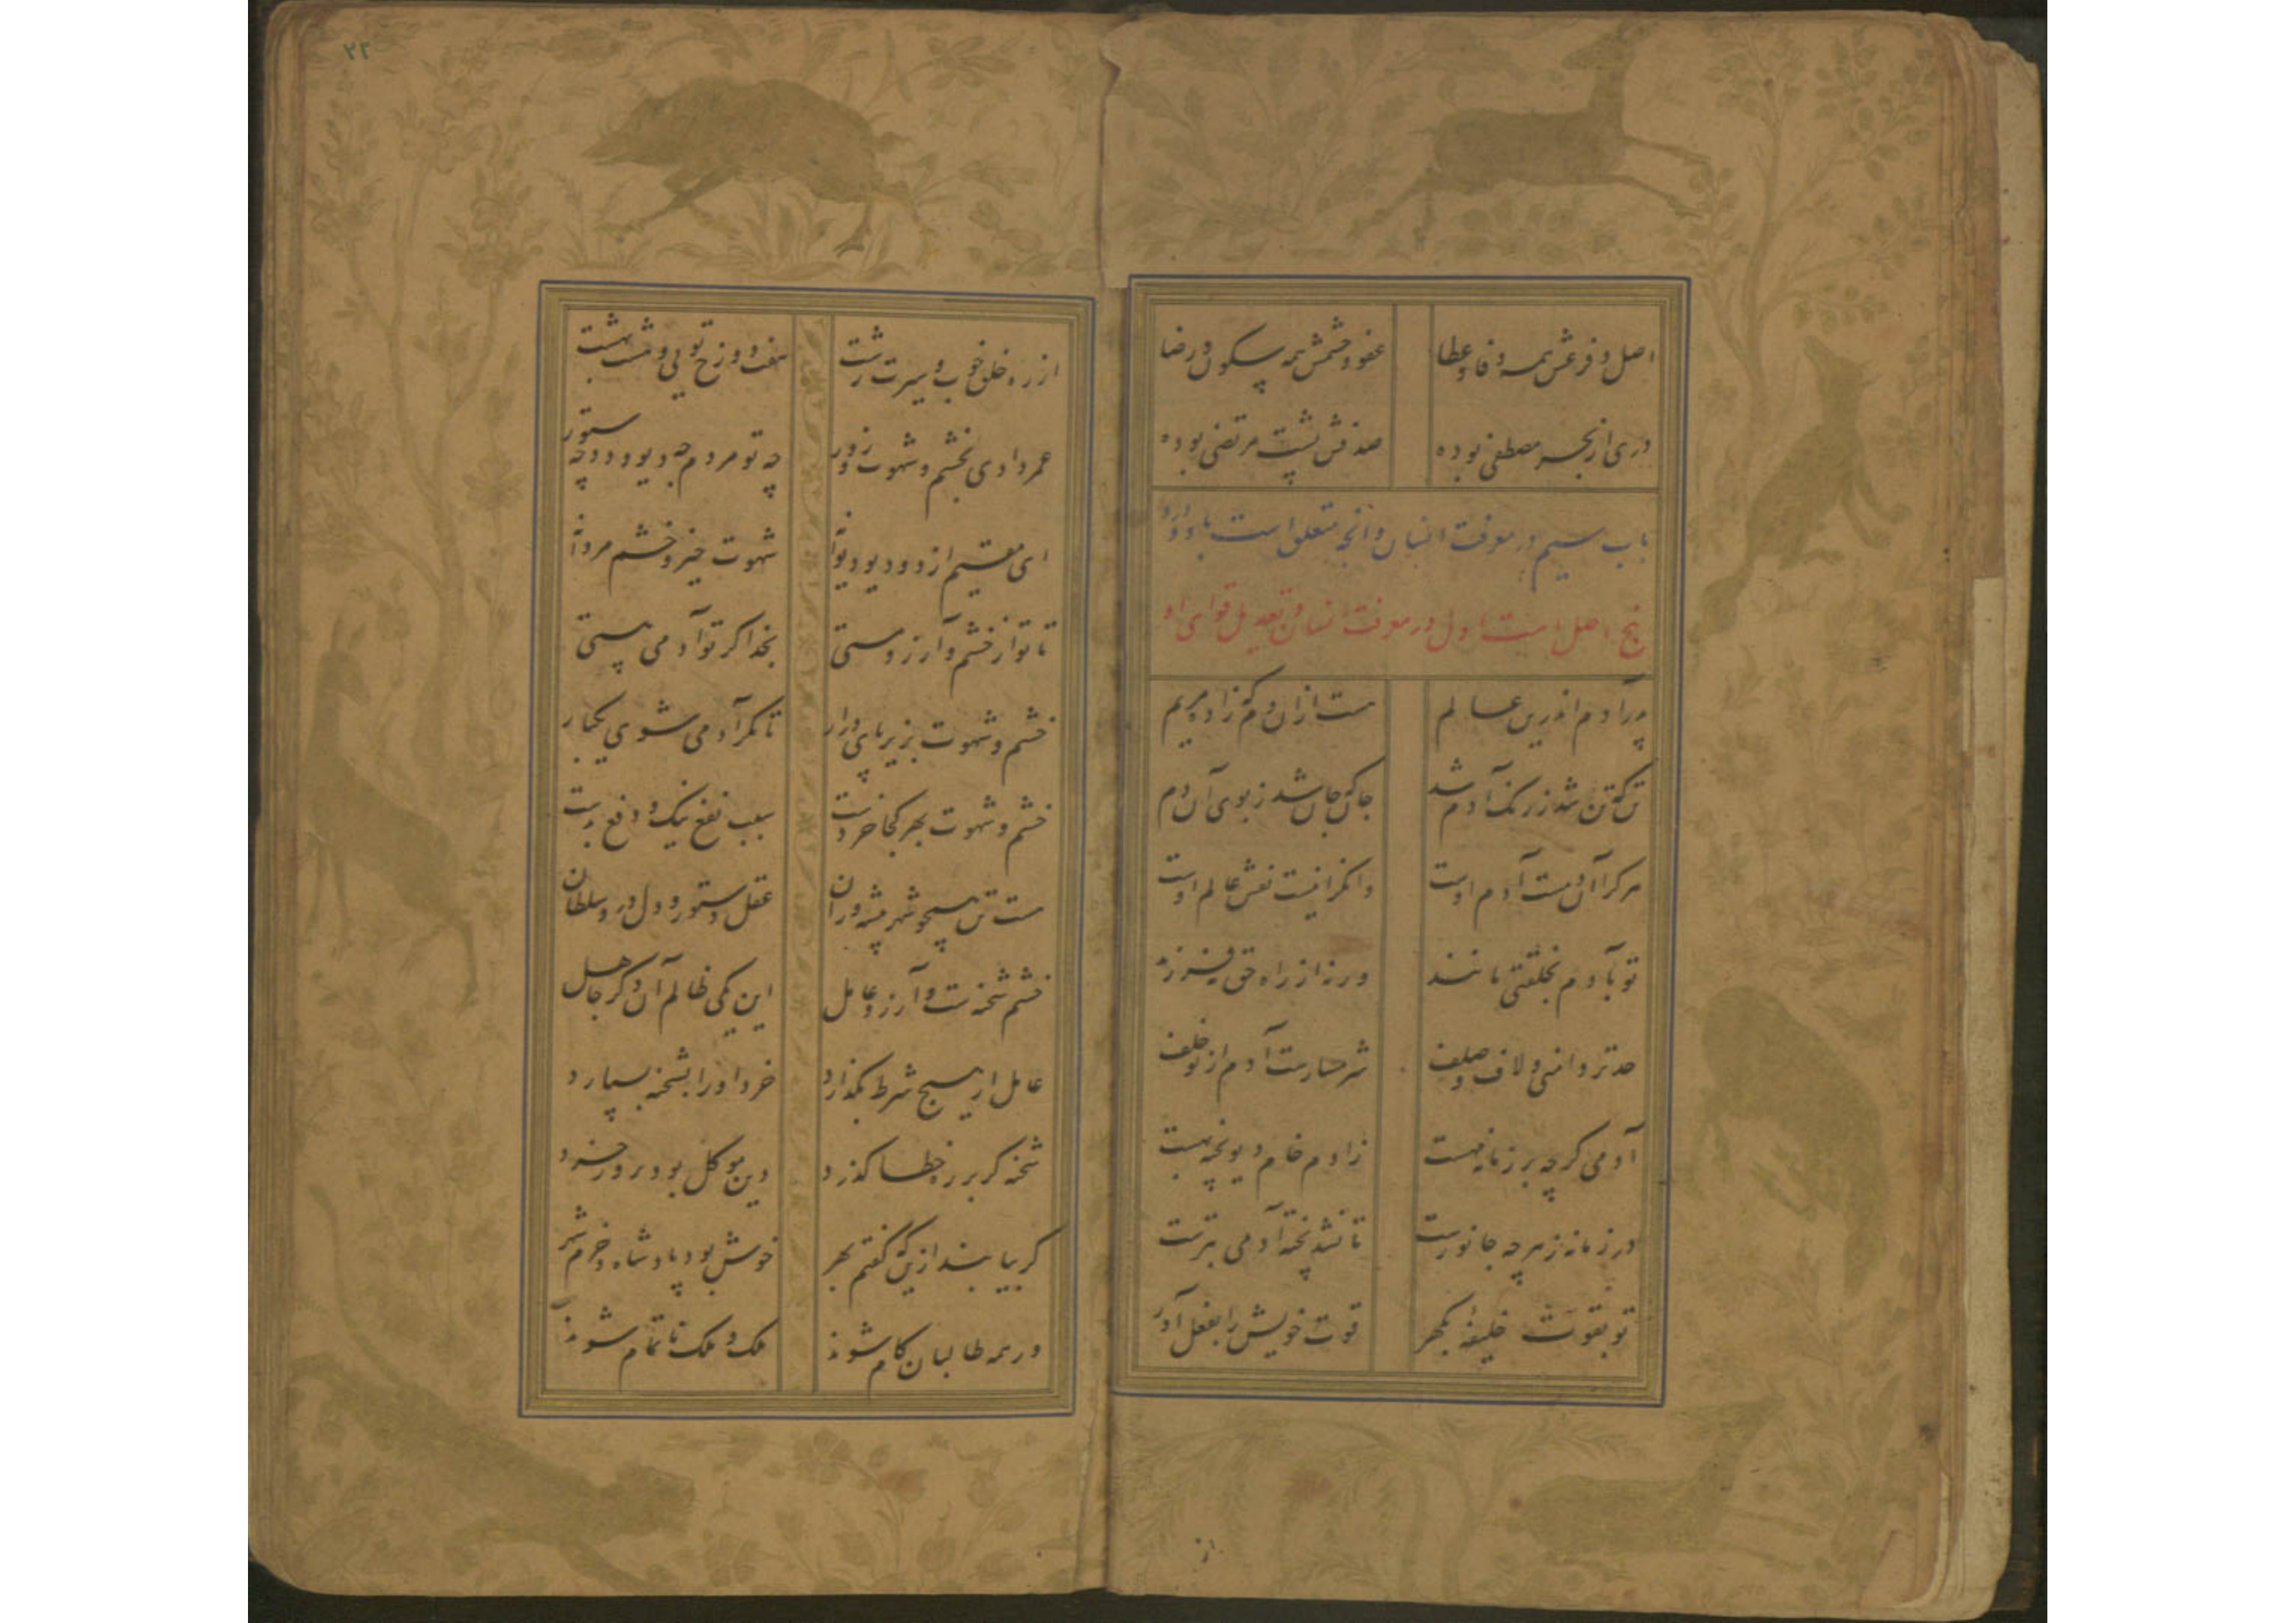 ۲۲
اصل و فرعش همه وفا و عطا عفو و خشمش همه سکون و رضا
دری از بحر مصطفی بوده صدفش پشت مرتضی بوده
باب سیم در معرفت انسان و آنچه متعلق است باو و دارد
پنج اصل است اول در معرفت انسان و تعدیل قوای او
پدر آدم اندرین عالم هست ازان دم که زاد مریم
تن که تن شد ز رنک آدم شد جان که جان شد ز بوی آن دم
هرکرا آن دمست آدم اوست وانکرا نیست نقش عالم اوست
تو بآدم بخلقتی مانند ورنه از راه حق نه فرزند
حد تزوامنی و لاف و صلف شرمسارست آدم از تو خلف
آدمی کرچه بر زمانه مهست زادم خام دیو پخته بهست
در زمانه ز هرچه جانورست تا نشد پخته آدمی بترست
تو بقوت خلیفه بکهر قوت خویش را بفعل آور
از
از ره خلق خوب و سیرت زشت هفت دوزخ تویی و هشت بهشت
عمر دادی بخشم و شهوت و زور چه تو مردم چه دیو و دد چه ستور
ای مقیم از دو دیو دیوانه شهوت حیز و خشم مردانه
تا تو از خشم و آرزو مستی بخدا کر تو آدمی هستی
خشم و شهوت بزیر پای درار تا مکر آدمی شوی یکبار
خشم و شهوت بهر کجا خردست سبب نفع نیک و دفع بدست
هست تن همچو شهر پیشه وران عقل دستور و دل درو سلطان
خشم شحنه ست و آرزو عامل این یکی ظالم آن دکر جاهل
عامل ار هیچ شرط بکذارد خرد او را بشحنه بسپارد
شحنه کر بر ره خطا کذرد دین موکل بود برو ز خرد
کر بیابند ازین که کفتم بهر خوش بود پادشاه و خرم شهر
ور همه طالبان کام شوند ملک و ملک ناتمام شوند